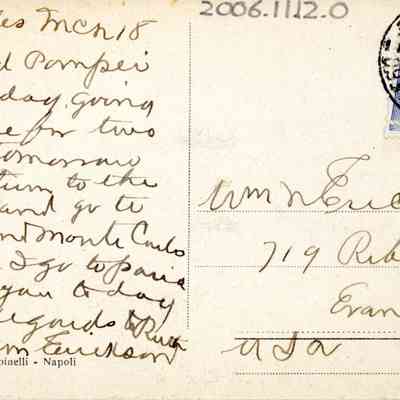 2006.1112.0
les Mch 18
d Pompei
day going
e for two
tomorrow
turn to the
and go to
nd Monte Carlo
I go to Paris
you to day
egards to Ruth
m Erickson
pinelli - Napoli
Wm N Eric
719 Rib
Evan
USA